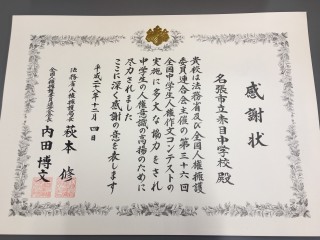 感謝状
名張市立赤目中学校 殿
貴校は法務省及び全国人権擁護
委員連合会主催の第三十六回
全国中学生人権作文コンテストの
実施に多大な協力をされ
中学生の人権意識の高揚のために
尽力されました
ここに深く感謝の意を表します
平成二十八年十二月四日
法務省人権擁護局長 萩本 修
全国人権擁護委員連合会会長 内田 博文